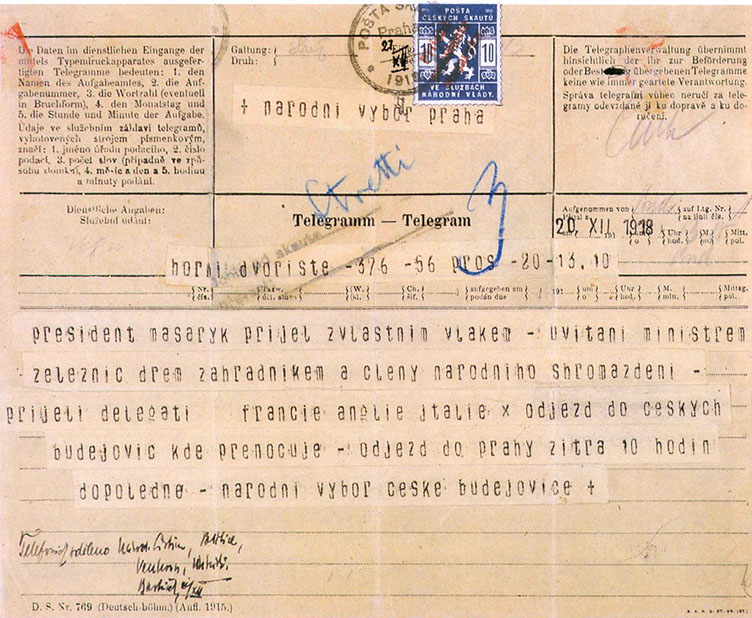 Die Daten im dienstlichen Eingange der
mittels Typendruckapparates ausgefer-
tigten Telegramme bedeuten: 1. den
Namen des Aufgabeamtes, 2. die Auf-
gabenummer, 3. die Wortzahl (eventuell
in Bruchform), 4. den Monatstag und
5. die Stunde und Minute der Aufgabe.
Údaje ve služebním záhlaví telegramů,
vyhotovených strojem písmenkovým,
značí: 1. jméno úřadu podacího, 2. číslo
podací, 3. počet slov (případně ve způ-
sobu zlomku), 4. měsíc a den a 5. hodinu
a minuty podání.
Gattung:
Druh:
POŠTA
Praha
1918
POŠTA
ČESKÝCH SKAUTŮ
10 10
VE SLUŽBÁCH
NÁRODNÍ VLÁDY.
Die Telegraphenverwaltung übernimmt
hinsichtlich der ihr zur Beförderung
oder übergebenen Telegramme
keine wie immer geartete Verantwortung.
Správa telegrafní vůbec neručí za tele-
gramy odevzdané jí ku dopravě a ku do-
ručení.
+ narodni vybor praha
Stretti
3
Dienstliche Angaben:
Služební údaje:
Telegramm — Telegram
Aufgenommen von auf Ltg. Nr.
na linii čís.
20 XII 1918
Uhr (M.) Mitt.
hod. (m.) pol.
horni dvoriste -376 -56 pros -20-13.10
Nr. Taxw. (W.) Ch. aufgegeben am 191 um Uhr M. Mittag.
čís. dct. slova (sl.) šif. podán dne o hod. min. pol.
president masaryk prijel zvlastnim vlakem - uvitani ministrem
zeleznic drem zahradnikem a cleny narodniho shromazdeni -
prijeli delegati francie anglie jtalie x odjezd do ceskych
budejovic kde prenocuje - odjezd do prahy zitra 10 hodin
dopoledne - narodni vybor ceske budejovice +
D. S. Nr. 769 (Deutsch-böhm.) (Aufl. 1915.)